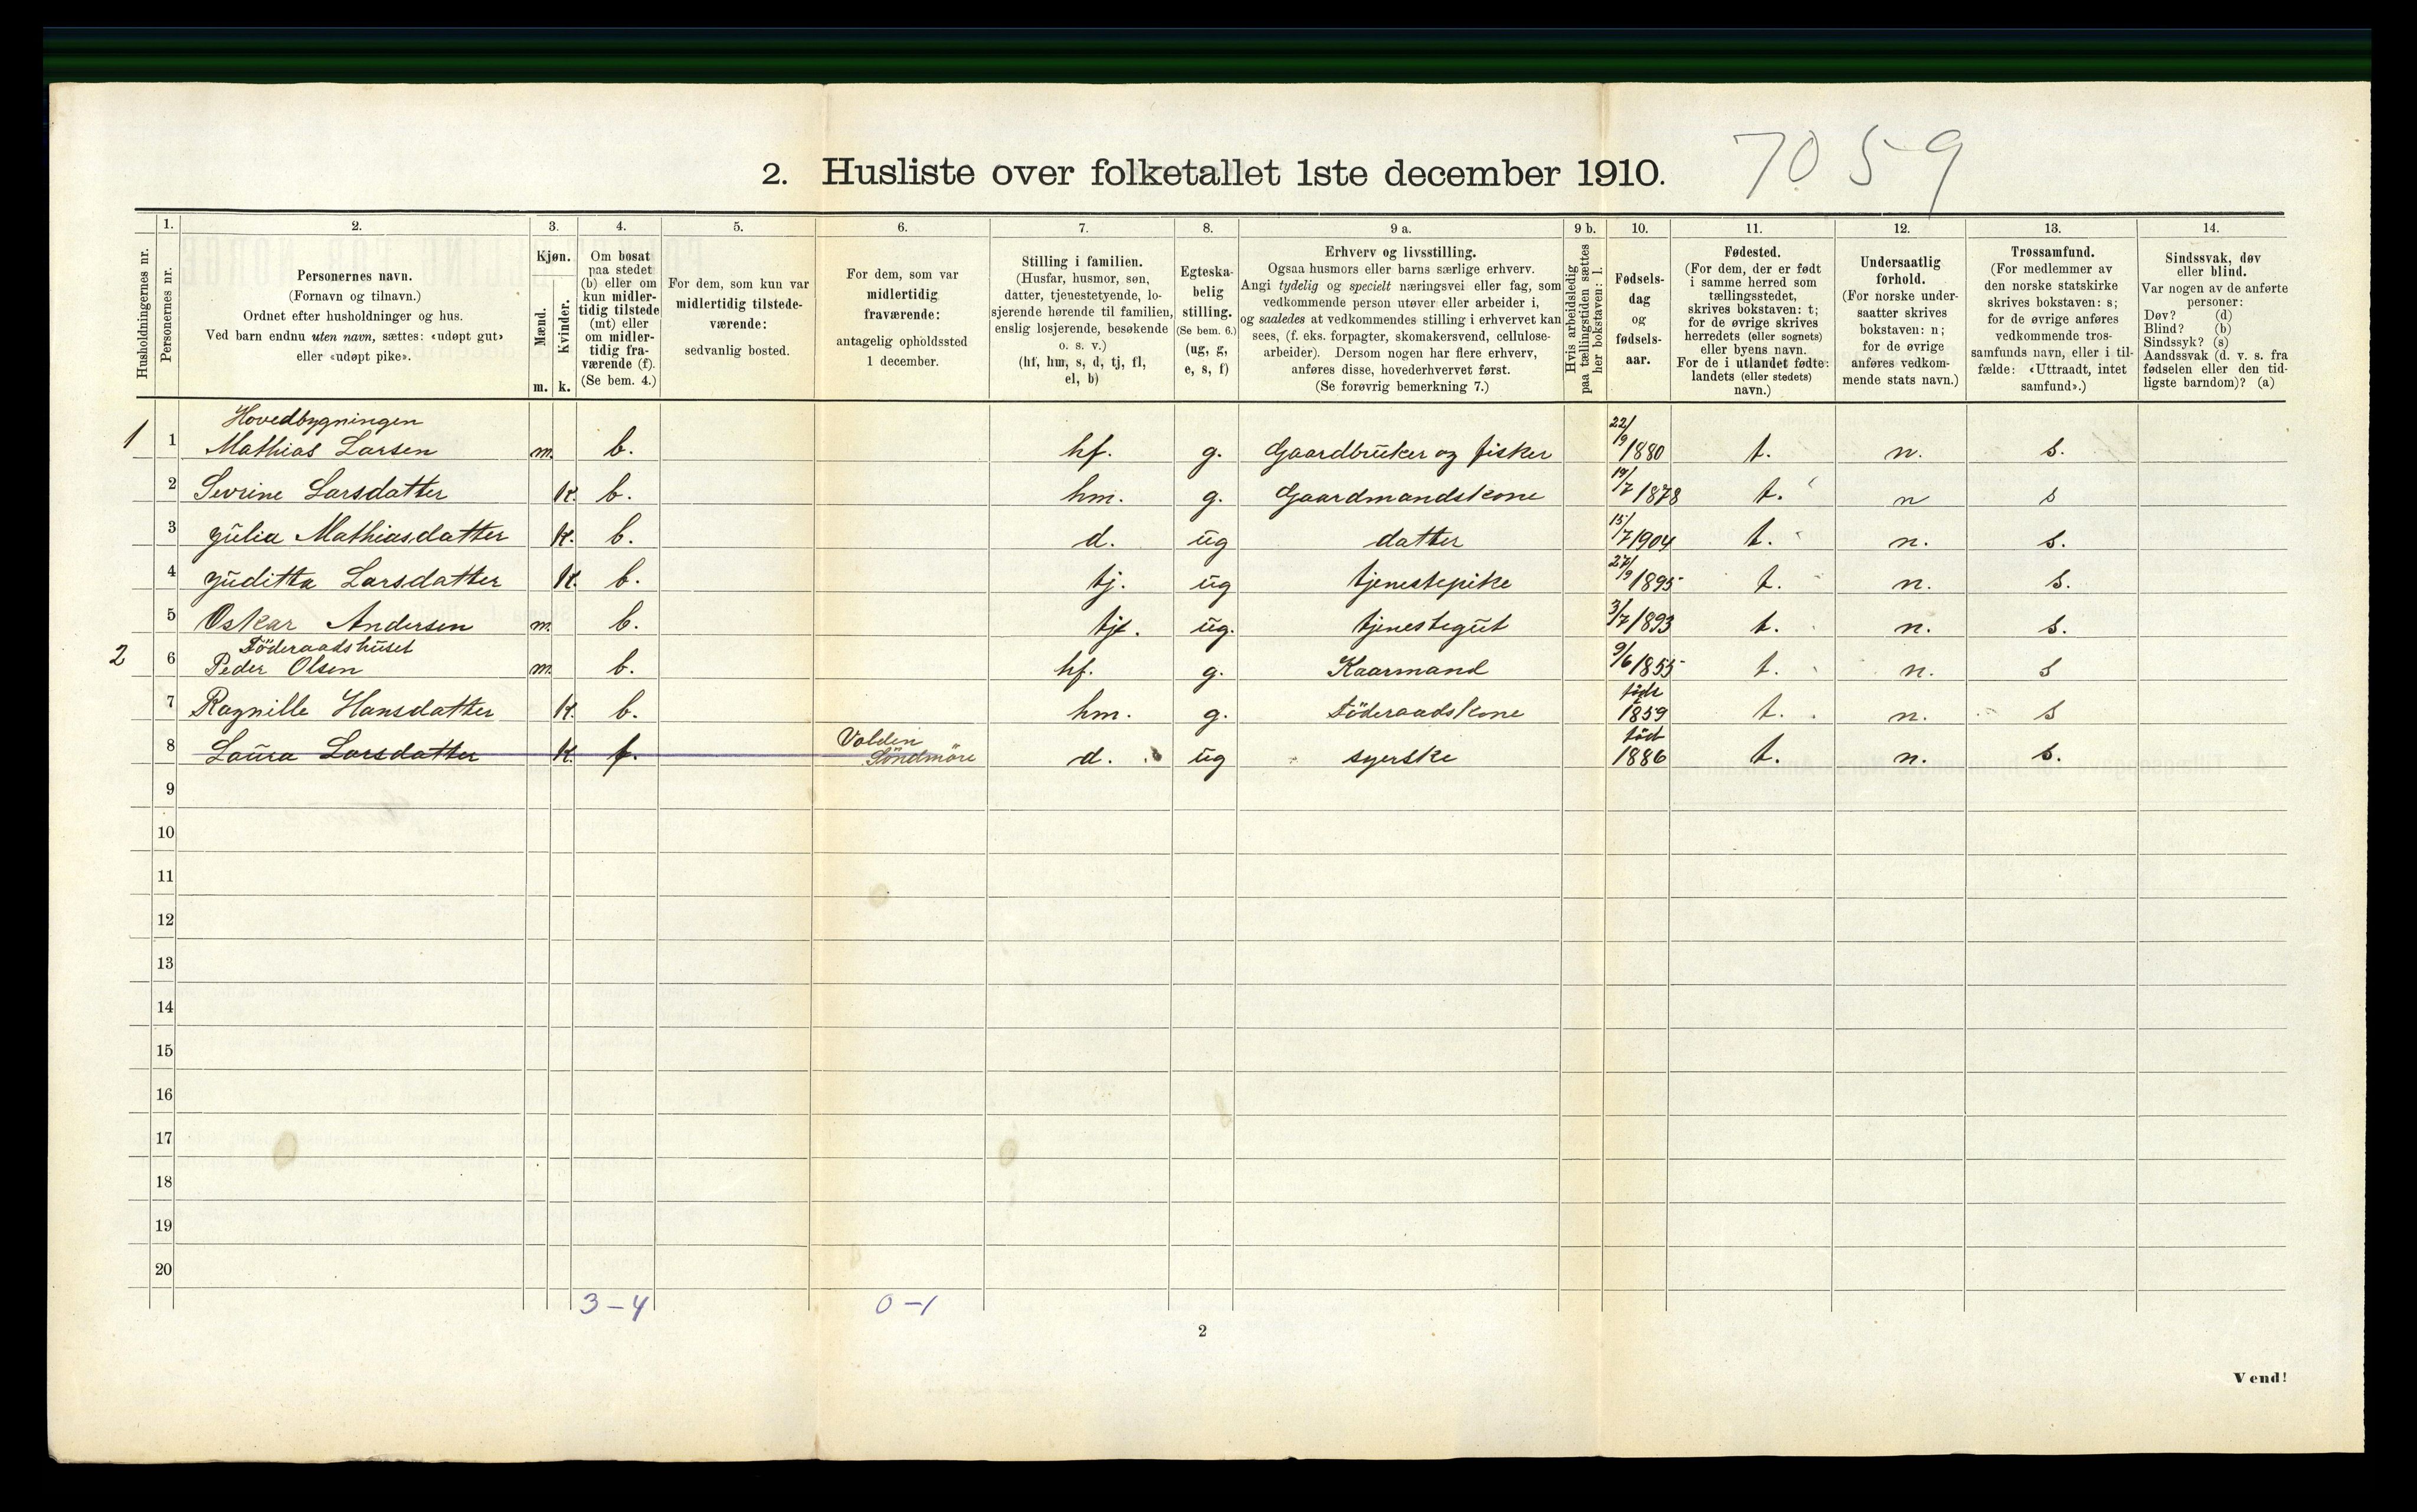 7059
2. Husliste over folketallet 1ste december 1910.
Husholdningernes nr.
1. Personernes nr.
2. Personernes navn.
(Fornavn og tilnavn.)
Ordnet efter husholdninger og hus.
Ved barn endnu uten navn, sættes: «udøpt gut»
eller «udøpt pike».
3. Kjøn.
Mænd. m.
Kvinder. k.
4. Om bosat
paa stedet
(b) eller om
kun midler-
tidig tilstede
(mt) eller
om midler-
tidig fra-
værende (f).
(Se bem. 4.)
5. For dem, som kun var
midlertidig tilstede-
værende:
sedvanlig bosted.
6. For dem, som var
midlertidig
fraværende:
antagelig opholdssted
1 december.
7. Stilling i familien.
(Husfar, husmor, søn,
datter, tjenestetyende, lo-
sjerende hørende til familien,
enslig losjerende, besøkende
o. s. v.)
(hf, hm, s, d, tj, fl,
el, b)
8. Egteska-
belig
stilling.
(Se bem. 6.)
(ug, g,
e, s, f)
9 a. Erhverv og livsstilling.
Ogsaa husmors eller barns særlige erhverv.
Angi tydelig og specielt næringsvei eller fag, som
vedkommende person utøver eller arbeider i,
og saaledes at vedkommendes stilling i erhvervet kan
sees, (f. eks. forpagter, skomakersvend, cellulose-
arbeider). Dersom nogen har flere erhverv,
anføres disse, hovederhvervet først.
(Se forøvrig bemerkning 7.)
9 b. Hvis arbeidsledig
paa tællingstiden sættes
her bokstaven: l.
10. Fødsels-
dag
og
fødsels-
aar.
11. Fødested.
(For dem, der er født
i samme herred som
tællingsstedet,
skrives bokstaven: t;
for de øvrige skrives
herredets (eller sognets)
eller byens navn.
For de i utlandet fødte:
landets (eller stedets)
navn.)
12. Undersaatlig
forhold.
(For norske under-
saatter skrives
bokstaven: n;
for de øvrige
anføres vedkom-
mende stats navn.)
13. Trossamfund.
(For medlemmer av
den norske statskirke
skrives bokstaven: s;
for de øvrige anføres
vedkommende tros-
samfunds navn, eller i til-
fælde: «Uttraadt, intet
samfund».)
14. Sindssvak, døv
eller blind.
Var nogen av de anførte
personer:
Døv? (d)
Blind? (b)
Sindssyk? (s)
Aandssvak (d. v. s. fra
fødselen eller den tid-
ligste barndom)? (a)
Hovedbygningen
1 1 Mathias Larsen m. b. hf. g. Gaardbruker og fisker 22/9 1880 t. n. s.
2 Sevrine Larsdatter k. b. hm. g. Gaardmandskone 19/7 1878 t. n s
3 Julia Mathiasdatter k. b. d. ug datter 15/7 1904 t. n. s.
4 Juditta Larsdatter k. b. tj. ug tjenestepike 27/9 1895 t. n. s.
5 Oskar Andersen m. b. tjt. ug. tjenestegut 3/7 1893 t. n. s.
Föderaadshuset
2 6 Peder Olsen m. b. hf. g. Kaarmand 9/6 1855 t. n. s
7 Ragnille Hansdatter k. b. hm. g. Föderaadskone föde 1859 t. n. s
8 Laura Larsdatter k. f. Volden Söndmöre d. ug syerske föd 1886 t. n. s.
9
10
11
12
13
14
15
16
17
18
19
20
3-4 0-1
2
Vend!